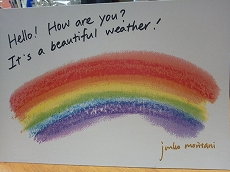 Hello! How are you?
It's a beautiful weather!
junko moritani